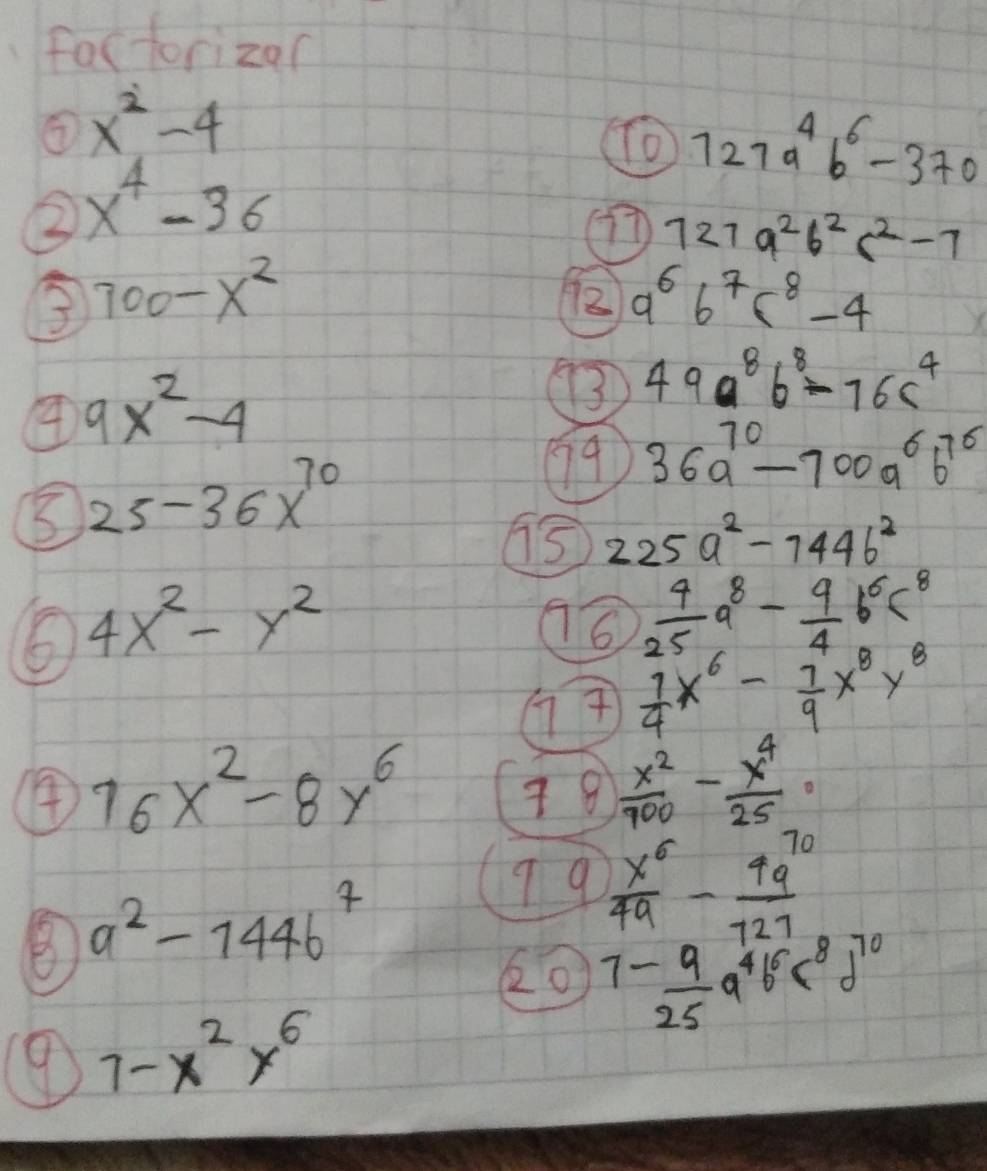 Factorizar
① x² - 4
② x⁴ - 36
③ 100 - x²
④ 9x² - 4
⑤ 25 - 36x¹⁰
⑥ 4x² - y²
⑦ 16x² - 8y⁶
⑧ a² - 144b⁷
⑨ 1 - x²y⁶
⑩ 121a⁴b⁶ - 370
⑪ 121a²b²c² - 1
⑫ a⁶b⁷c⁸ - 4
⑬ 49a⁸b⁸ - 16c⁴
⑭ 36a¹⁰ - 100a⁶b¹⁶
⑮ 225a² - 144b²
⑯ 4/25 a⁸ - 9/4 b⁶c⁸
⑰ 1/4 x⁶ - 1/9 x⁸y⁸
⑱ x²/100 - x⁴/25
⑲ x⁶/49 - 4a¹⁰/121
⑳ 1 - 9/25 a⁴b⁶c⁸d¹⁰